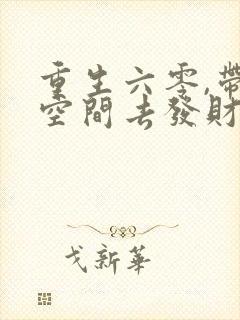 重生六零,帶
空間去發財
戈新華